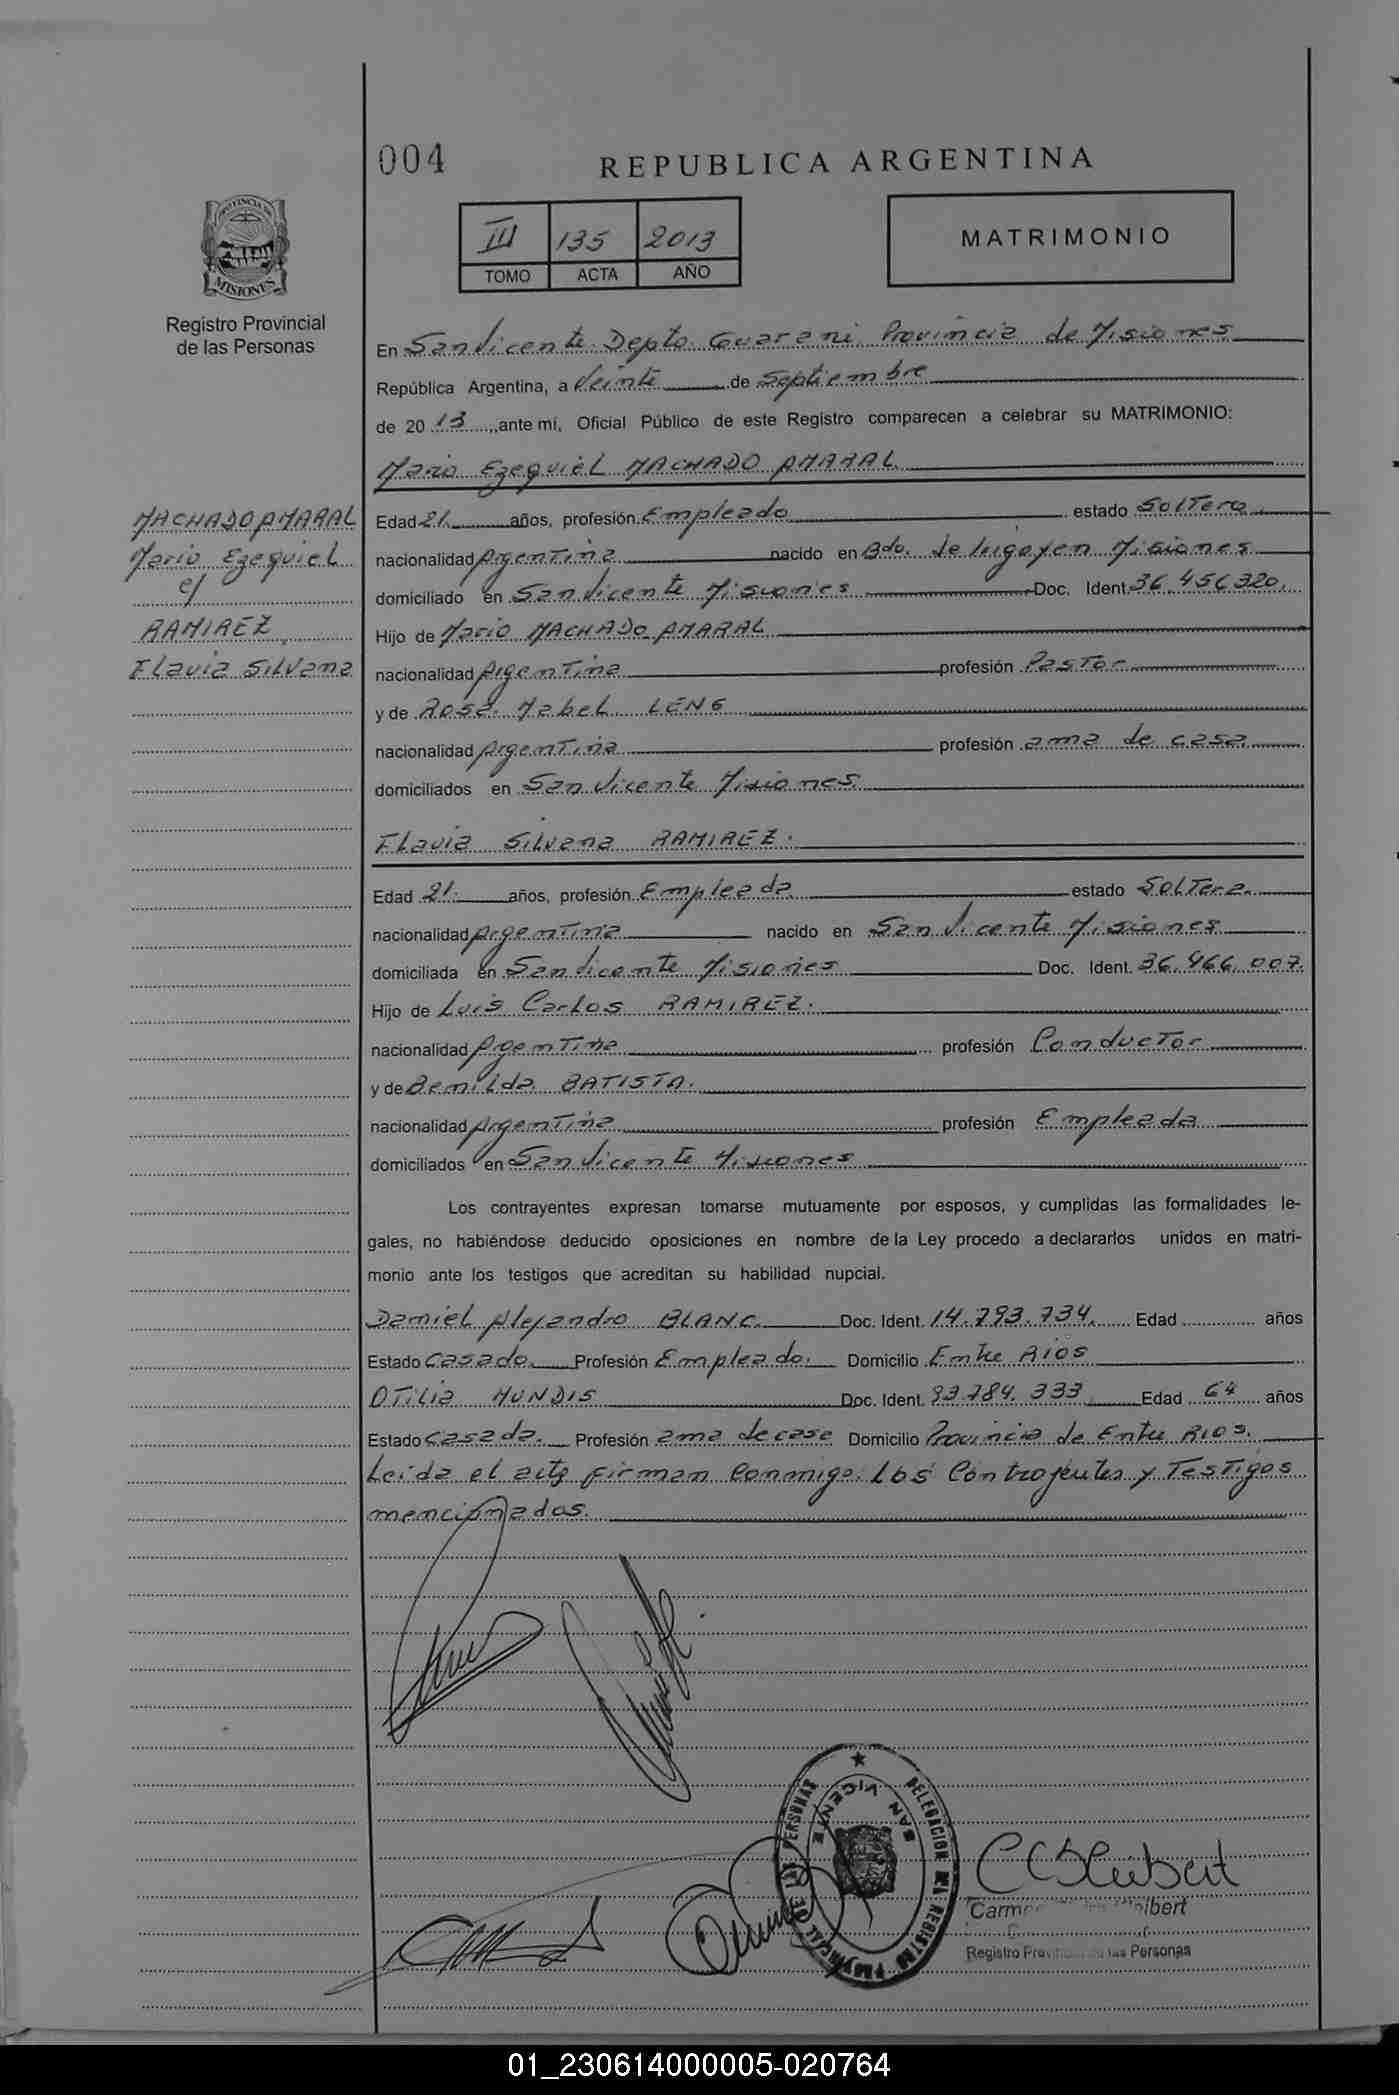 004
REPUBLICA ARGENTINA
PROVINCIA DE
MISIONES
Registro Provincial
de las Personas
III 135 2013
TOMO ACTA AÑO
MATRIMONIO
En San Vicente Depto. Guarani Provincia de Misiones
República Argentina, a Veinte de Septiembre
de 2013, ante mí, Oficial Público de este Registro comparecen a celebrar su MATRIMONIO:
Mario Ezequiel MACHADO AMARAL
MACHADO AMARAL
Mario Ezequiel
c/
RAMIREZ
Flavia Silvana
Edad 21 años, profesión Empleado estado Soltero
nacionalidad Argentina nacido en Bdo. de Irigoyen Misiones
domiciliado en San Vicente Misiones Doc. Ident. 36.456.320.
Hijo de Mario MACHADO AMARAL
nacionalidad Argentina profesión Pastor
y de Rosa Mabel LENG
nacionalidad Argentina profesión ama de casa
domiciliados en San Vicente Misiones.
Flavia Silvana RAMIREZ.
Edad 21. años, profesión Empleada estado Soltera.
nacionalidad Argentina nacido en San Vicente Misiones
domiciliada en San Vicente Misiones Doc. Ident. 36.466.007.
Hijo de Luis Carlos RAMIREZ.
nacionalidad Argentina profesión Conductor
y de Bemilda BATISTA.
nacionalidad Argentina profesión Empleada
domiciliados en San Vicente Misiones
Los contrayentes expresan tomarse mutuamente por esposos, y cumplidas las formalidades le-
gales, no habiéndose deducido oposiciones en nombre de la Ley procedo a declararlos unidos en matri-
monio ante los testigos que acreditan su habilidad nupcial.
Daniel Alejandro BLANC. Doc. Ident. 14.793.734. Edad años
Estado Casado. Profesión Empleado. Domicilio Entre Rios
OTILIA MUNDIS Doc. Ident. 93.784.333 Edad 64 años
Estado Casada. Profesión ama de casa Domicilio Provincia de Entre Rios.
Leida el acta firman conmigo los Contrayentes y Testigos
mencionados.
DELEGACION DEL REGISTRO PROVINCIAL DE LAS PERSONAS
SAN VICENTE
Registro Provincial de las Personas
01_230614000005-020764